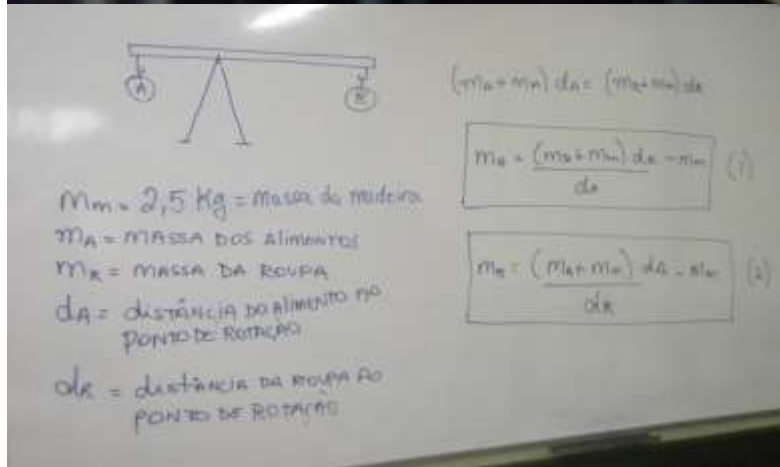 A
R
Mm = 2,5 Kg = Massa da madeira
MA = MASSA DOS ALIMENTOS
MR = MASSA DA ROUPA
dA = distÂNCIA DO ALIMENTO AO
PONTO DE ROTAÇÃO
dR = distÂNCIA DA ROUPA AO
PONTO DE ROTAÇÃO
(mA + mm) dA = (mR + mm) dR
mA = (mR + mm) dR - mm (1)
dA
mR = (mA + mm) dA - mm (2)
dR